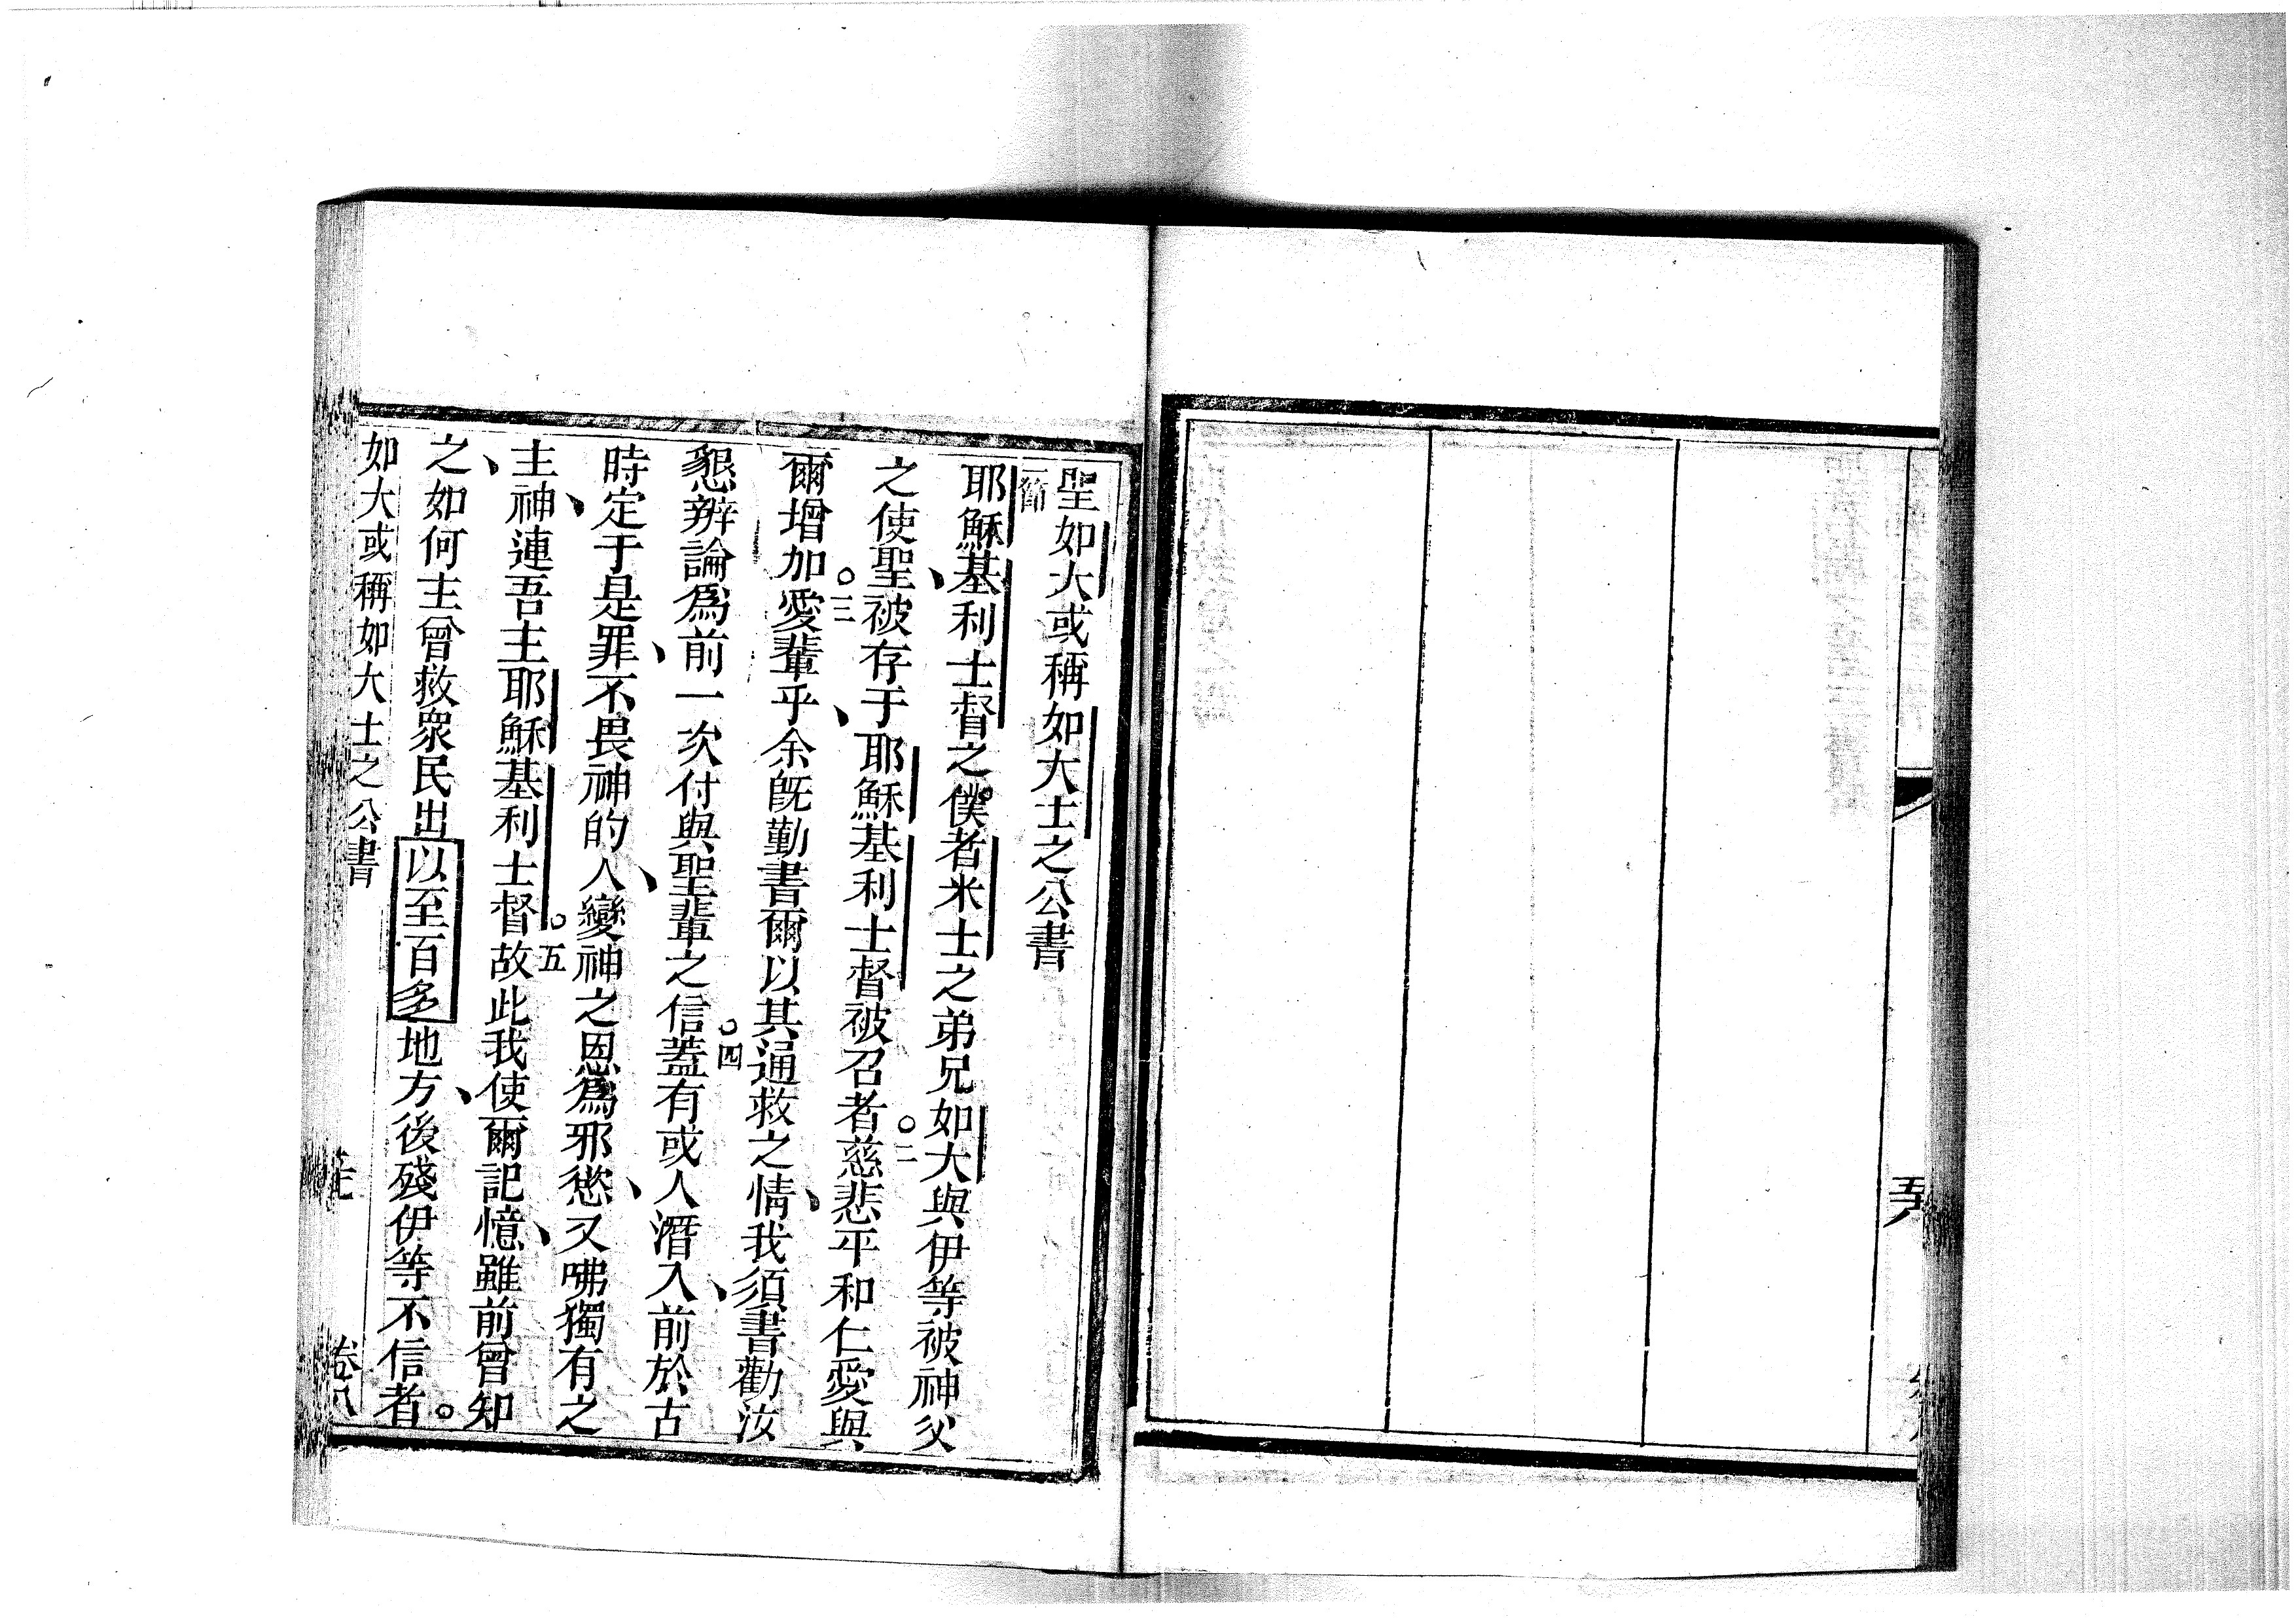 聖如大或稱如大士之公書
一節
耶穌基利士督之僕者米士之弟兄如大與伊等被神父
之使聖、被存于耶穌基利士督被召者。二慈悲平和仁愛與
爾增加。三愛輩乎、余旣勤書爾以其通救之情、我須書勸汝
懇辨論爲前一次付與聖輩之信。四蓋有或人潛入、前於古
時定于是罪、不畏神的人、變神之恩爲邪慾、又咈獨有之
主、神連吾主耶穌基利士督。五故此我使爾記憶、雖前曾知
之、如何主曾救衆民出以至百多地方、後殘伊等不信者。
如大或稱如大士之公書
卷八